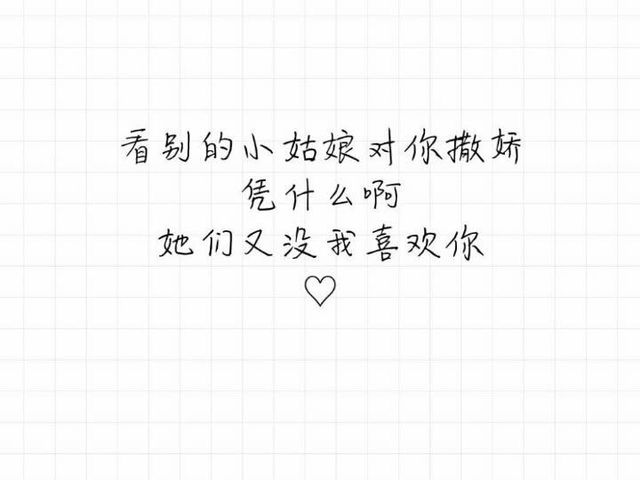 看别的小姑娘对你撒娇
凭什么啊
她们又没我喜欢你
♡